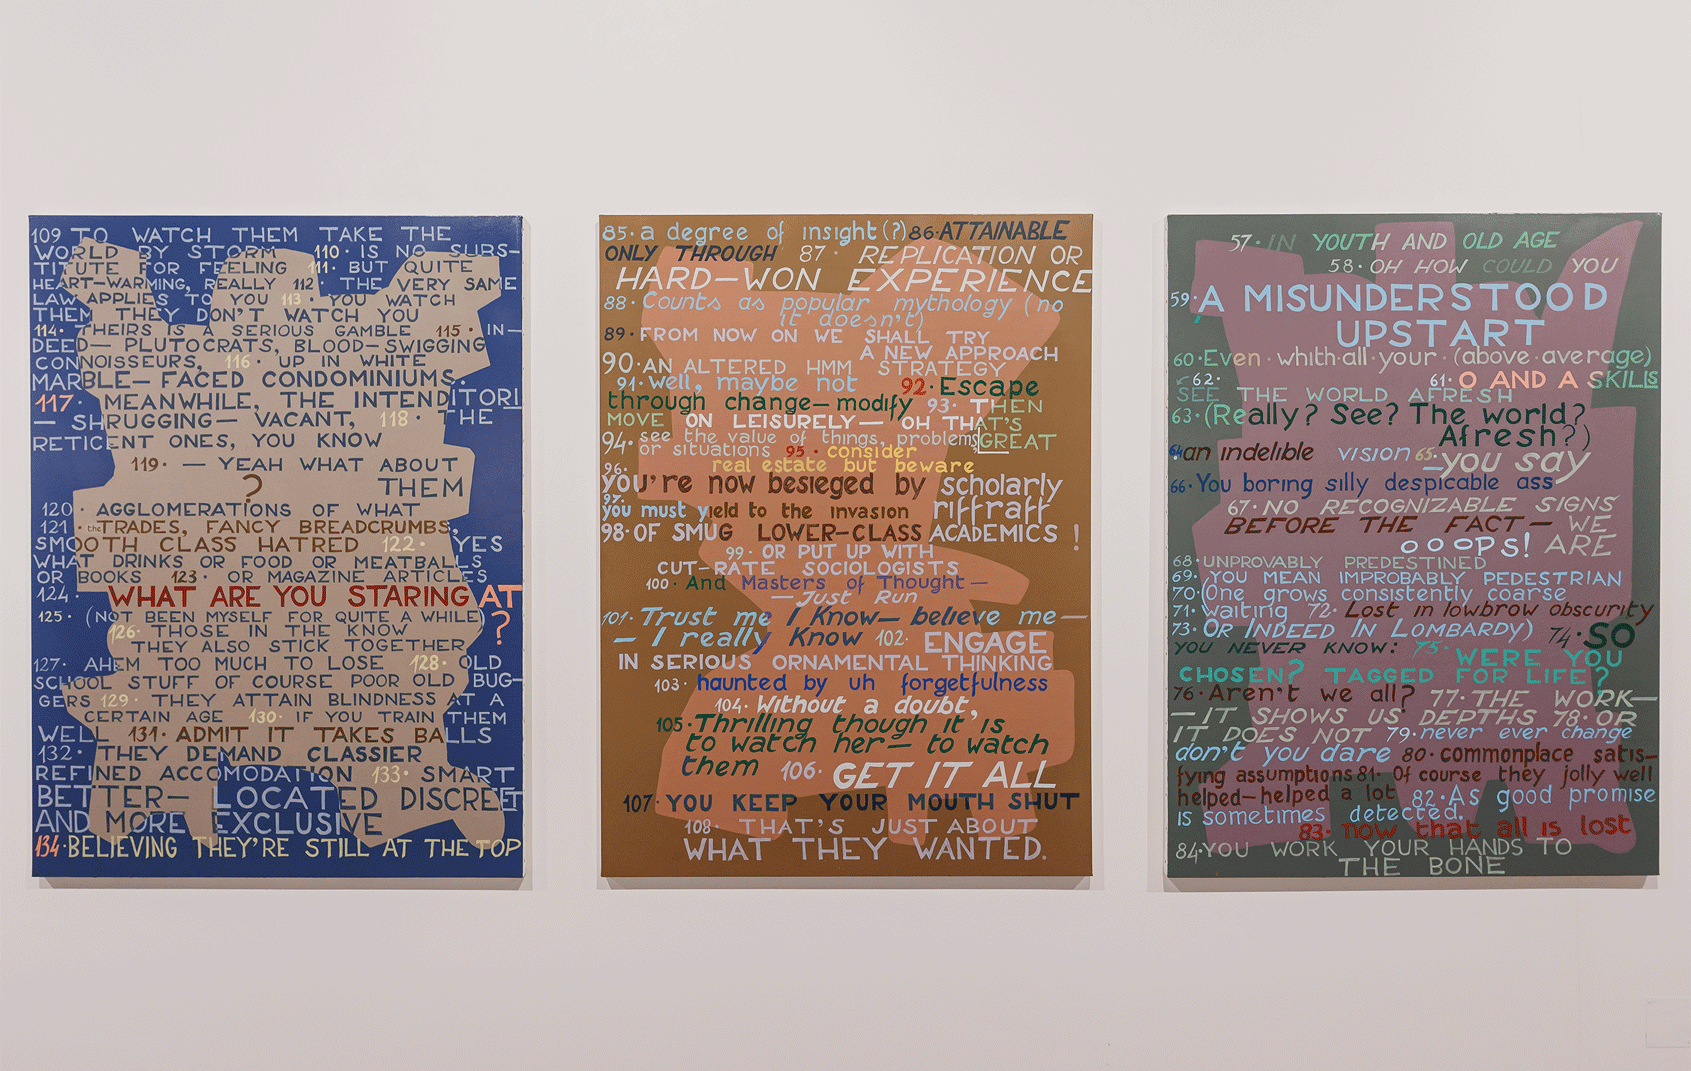 109 TO WATCH THEM TAKE THE
WORLD BY STORM 110· IS NO SUBS-
TITUTE FOR FEELING 111· BUT QUITE
HEART-WARMING, REALLY 112· THE VERY SAME
LAW APPLIES TO YOU 113· YOU WATCH
THEM THEY DON'T WATCH YOU
114· THEIRS IS A SERIOUS GAMBLE 115· IN-
DEED— PLUTOCRATS, BLOOD-SWIGGING
CONNOISSEURS, 116· UP IN WHITE
MARBLE-FACED CONDOMINIUMS.
117· MEANWHILE, THE INTENDITORI
— SHRUGGING— VACANT, 118· THE
RETICENT ONES, YOU KNOW
119· — YEAH WHAT ABOUT
? THEM
120· AGGLOMERATIONS OF WHAT
121· the TRADES, FANCY BREADCRUMBS,
SMOOTH CLASS HATRED 122· YES
WHAT DRINKS OR FOOD OR MEATBALLS
OR BOOKS 123· OR MAGAZINE ARTICLES
124· WHAT ARE YOU STARING AT
125· (NOT BEEN MYSELF FOR QUITE A WHILE) ?
126· THOSE IN THE KNOW
THEY ALSO STICK TOGETHER
127· AHEM TOO MUCH TO LOSE 128· OLD
SCHOOL STUFF OF COURSE POOR OLD BUG-
GERS 129· THEY ATTAIN BLINDNESS AT A
CERTAIN AGE 130· IF YOU TRAIN THEM
WELL 131· ADMIT IT TAKES BALLS
132· THEY DEMAND CLASSIER
REFINED ACCOMODATION 133· SMART
BETTER— LOCATED DISCREET
AND MORE EXCLUSIVE
134·BELIEVING THEY'RE STILL AT THE TOP
85·a degree of insight(?)86·ATTAINABLE
ONLY THROUGH 87· REPLICATION OR
HARD-WON EXPERIENCE
88· Counts as popular mythology (no
it doesn't)
89· FROM NOW ON WE SHALL TRY
A NEW APPROACH
90·AN ALTERED HMM STRATEGY
91·well, maybe not 92·Escape
through change-modify 93· THEN
MOVE ON LEISURELY— OH THAT'S
94· see the value of things, problems GREAT
or situations 95· consider
96· real estate but beware
you're now besieged by scholarly
97· you must yield to the invasion riffraff
98·OF SMUG LOWER-CLASS ACADEMICS !
99· OR PUT UP WITH
CUT-RATE SOCIOLOGISTS
100· And Masters of Thought—
—Just Run
101·Trust me I Know— believe me—
— I really Know 102· ENGAGE
IN SERIOUS ORNAMENTAL THINKING
103· haunted by uh forgetfulness
104· Without a doubt,
105·Thrilling though it is
to watch her— to watch
them 106· GET IT ALL
107·YOU KEEP YOUR MOUTH SHUT
108· THAT'S JUST ABOUT
WHAT THEY WANTED.
57·IN YOUTH AND OLD AGE
58·OH HOW COULD YOU
59·A MISUNDERSTOOD
UPSTART
60·Even·whith·all·your·(above·average)
62· 61· O AND A SKILLS
SEE THE WORLD AFRESH
63·(Really? See? The world?
Afresh?)
64·an indelible vision 65·
—you say
66·You boring silly despicable ass
67·NO RECOGNIZABLE SIGNS
BEFORE THE FACT— WE
OOOPS! ARE
68·UNPROVABLY PREDESTINED
69· YOU MEAN IMPROBABLY PEDESTRIAN
70·(One grows consistently coarse
71· waiting 72· Lost in lowbrow obscurity
73· OR INDEED IN LOMBARDY) 74·SO
YOU NEVER KNOW: 75· WERE YOU
CHOSEN? TAGGED FOR LIFE?
76·Aren't we all? 77·THE WORK—
—IT SHOWS US DEPTHS 78· OR
IT DOES NOT 79·never ever change
don't you dare 80·commonplace satis-
fying assumptions 81· Of course they jolly well
helped-helped a lot 82·As good promise
is sometimes detected.
83· now that all is lost
84·YOU WORK YOUR HANDS TO
THE BONE